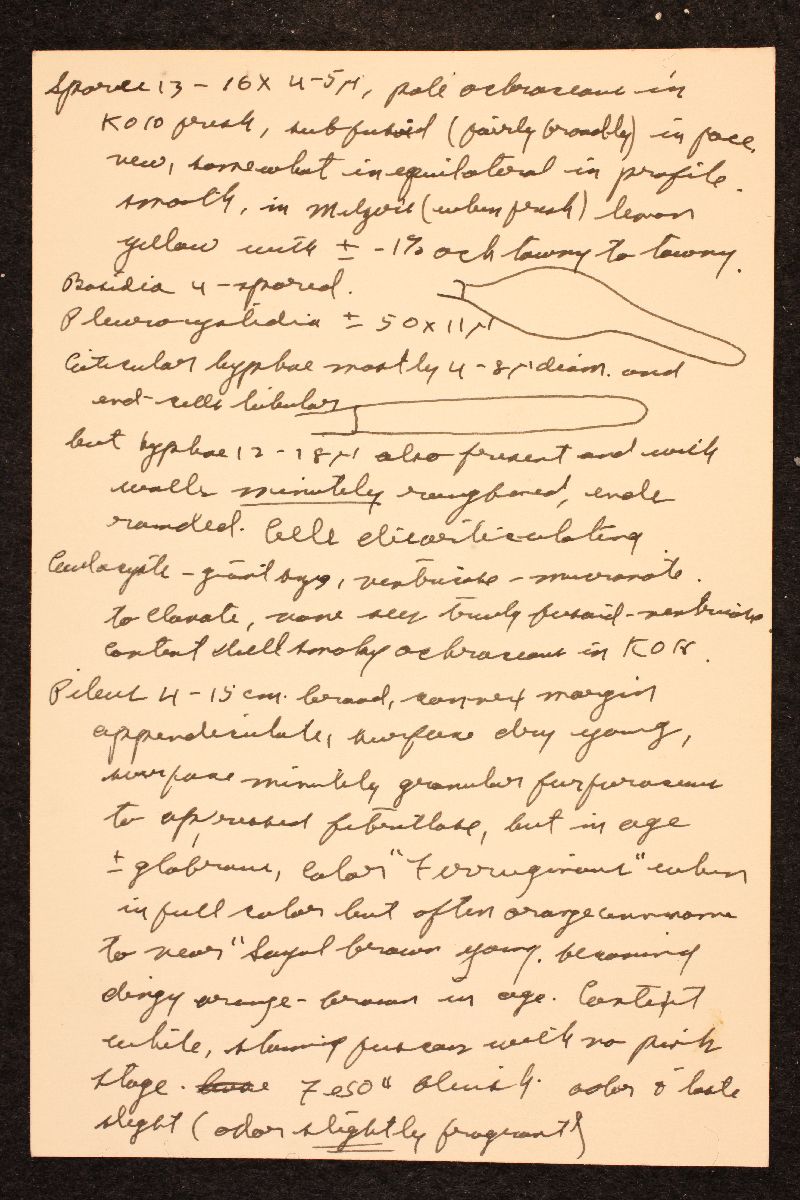 Spores 13 - 16 X 4-5 μ, pale ochraceous in
KOH fresh, subfusoid (fairly broadly) in face
view, somewhat inequilateral in profile.
smooth, in Melzers (when fresh) lemon
yellow with ± -1% och tawny to tawny.
Basidia 4-spored.
Pleurocystidia ± 50 x 11 μ
Cuticular hyphae mostly 4-8 μ diam. and
end-cells tubular
but hyphae 12-18 μ also present and with
walls minutely roughened, ends
rounded. Cells disarticulating
Caulocysts - giant, ventricose-mucronate.
to clavate, none seen truly fusoid-ventricose.
content dull smoky ochraceous in KOH.
Pileus 4-15 cm. broad, convex margin
appendiculate, surface dry young,
surface minutely granular furfuraceous
to appressed fibrillose, but in age
± glabrous, color "Ferruginous" when
in full color but often orange cinnamon
to near "Sayal brown young, becoming
dingy orange-brown in age. Context
white, staining fuscous with no pink
stage. FeSO4 bluish. odor & taste
slight (odor slightly fragrant)